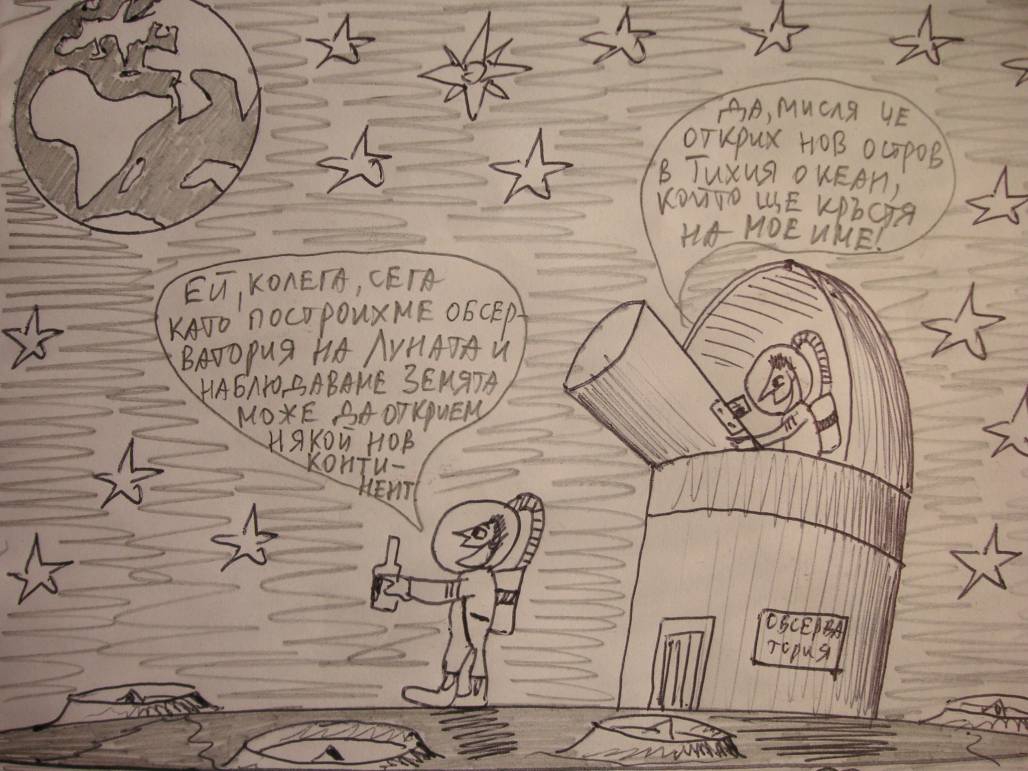 ЕЙ, КОЛЕГА, СЕГА
КАТО ПОСТРОИХМЕ ОБСЕР-
ВАТОРИЯ НА ЛУНАТА И
НАБЛЮДАВАМЕ ЗЕМЯТА
МОЖЕ ДА ОТКРИЕМ
НЯКОЙ НОВ
КОНТИ-
НЕНТ
ДА, МИСЛЯ ЧЕ
ОТКРИХ НОВ ОСТРОВ
В ТИХИЯ ОКЕАН,
КОЙТО ЩЕ КРЪСТЯ
НА МОЕ ИМЕ!
ОБСЕРВА
ТОРИЯ